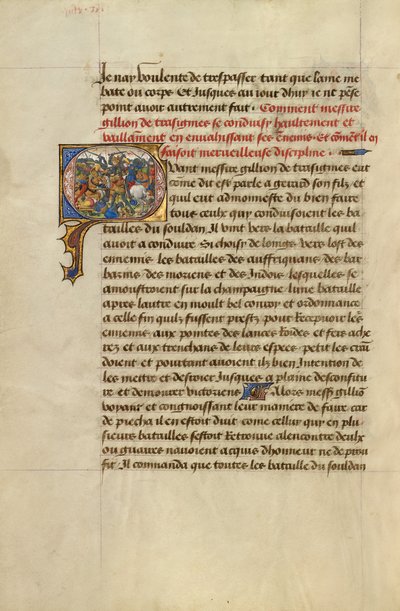 Je nay voulente de trespasser tant que lame me
bate ou corps Et Jusques au iour dhuy ie ne pēse
point avoir autrement fait . Comment messire
gillion de trasignies se conduisy haultement et
vaillāment en envahissant ses ēnemis . Et cōmēt il en
faisoit merveilleuse discipline .
Quant messire gillion de trasignies eut
cōme dit est parle a gerard son filz . et
quil eut admonneste du bien faire
tous ceulx qui conduisoient les ba
tailles du souldan Il vint vers la bataille quil
avoit a conduire Si choisy de loingz vers lost des
ennemis les batailles des auffriquans des bar
barins des moriens et des Indois lesquelles se
amonstroient sur la champaigne lune bataille
apres lautre en moult bel convoy et ordonnance
a celle fin quilz fussent prestz pour Recepvoir les
ennemis aux pointes des lances Roides et fers ache
rez et aux trenchans de leurs espees petit les crai
doient et pourtant avoient ilz bien Intention de
les mettre et destroier Jusques a plaine desconfitu
re et demourer victoriens Alors messē gilliō
voyant et congnoissant leur maniere de faire car
de piecha il en estoit duit come cellui qui en plu
sieurs batailles sestoit Retrouve alencontre deulx
ou gaaires navoient acquis dhonneur ne de prou
fit Il commanda que toutes les bataille du souldan